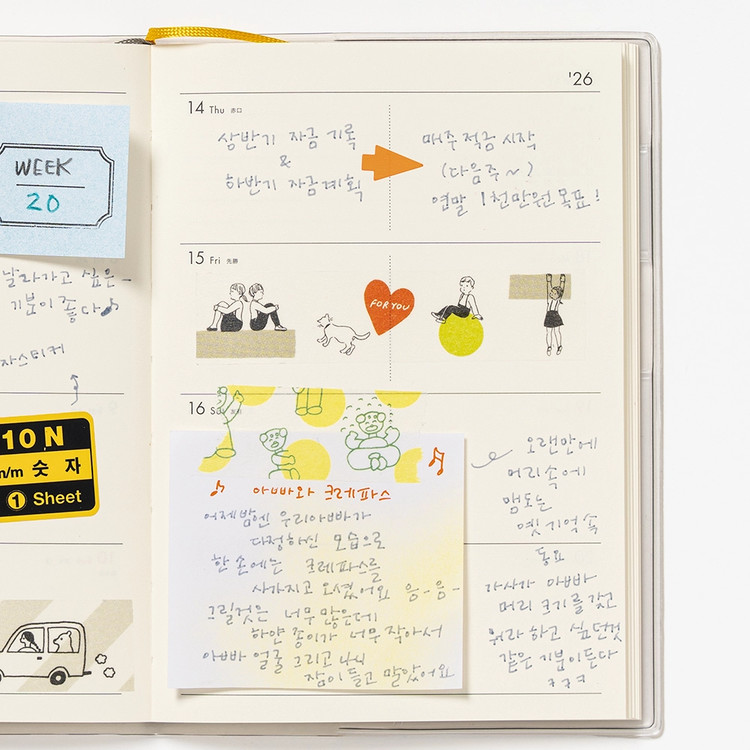 WEEK
20
날라가고 싶은-
기분이 좋다♪
자스티커
10 N
m/m 숫 자
① Sheet
'26
14 Thu 赤口
상반기 자금 기록
&
하반기 자금계획
매주 적금 시작
(다음주~)
연말 1천만원 목표!
15 Fri 先勝
FOR YOU
16
아빠와 크레파스
어제밤엔 우리아빠가
다정하신 모습으로
한 손에는 크레파스를
사가지고 오셨어요 음-음-
그릴것은 너무 많은데
하얀 종이가 너무 작아서
아빠 얼굴 그리고 나니
잠이들고 말았어요
오랜만에
머리속에
맴도는
옛 기억 속
동요
가사가 아빠
머리 크기를 갖고
뭐라 하고 싶던것
같은 기분이든다
ㅋㅋㅋ